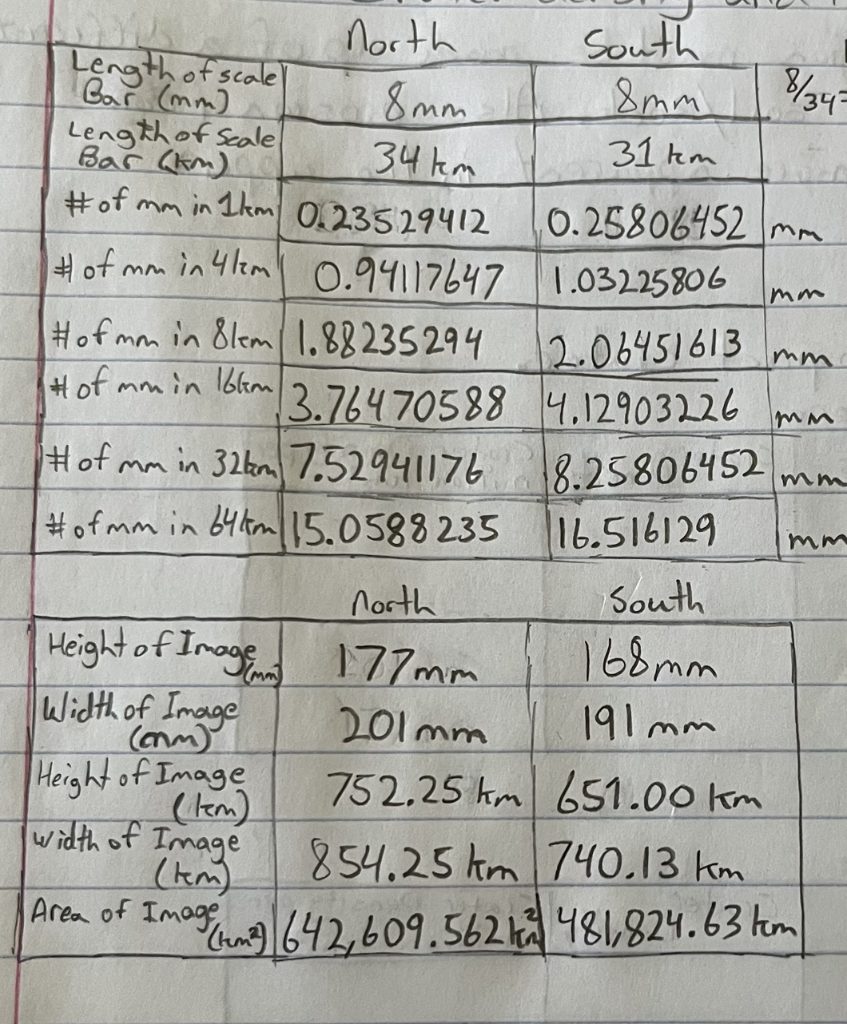 North South
Length of scale Bar (mm) 8mm 8mm 8/34=
Length of scale Bar (km) 34 km 31 km
# of mm in 1km 0.23529412 0.25806452 mm
# of mm in 4km 0.94117647 1.03225806 mm
# of mm in 8km 1.88235294 2.06451613 mm
# of mm in 16km 3.76470588 4.12903226 mm
# of mm in 32km 7.52941176 8.25806452 mm
# of mm in 64km 15.0588235 16.516129 mm
North South
Height of Image (mm) 177mm 168mm
Width of Image (mm) 201mm 191mm
Height of Image (km) 752.25 km 651.00 km
Width of Image (km) 854.25 km 740.13 km
Area of Image (km²) 642,609.562 km² 481,824.63 km